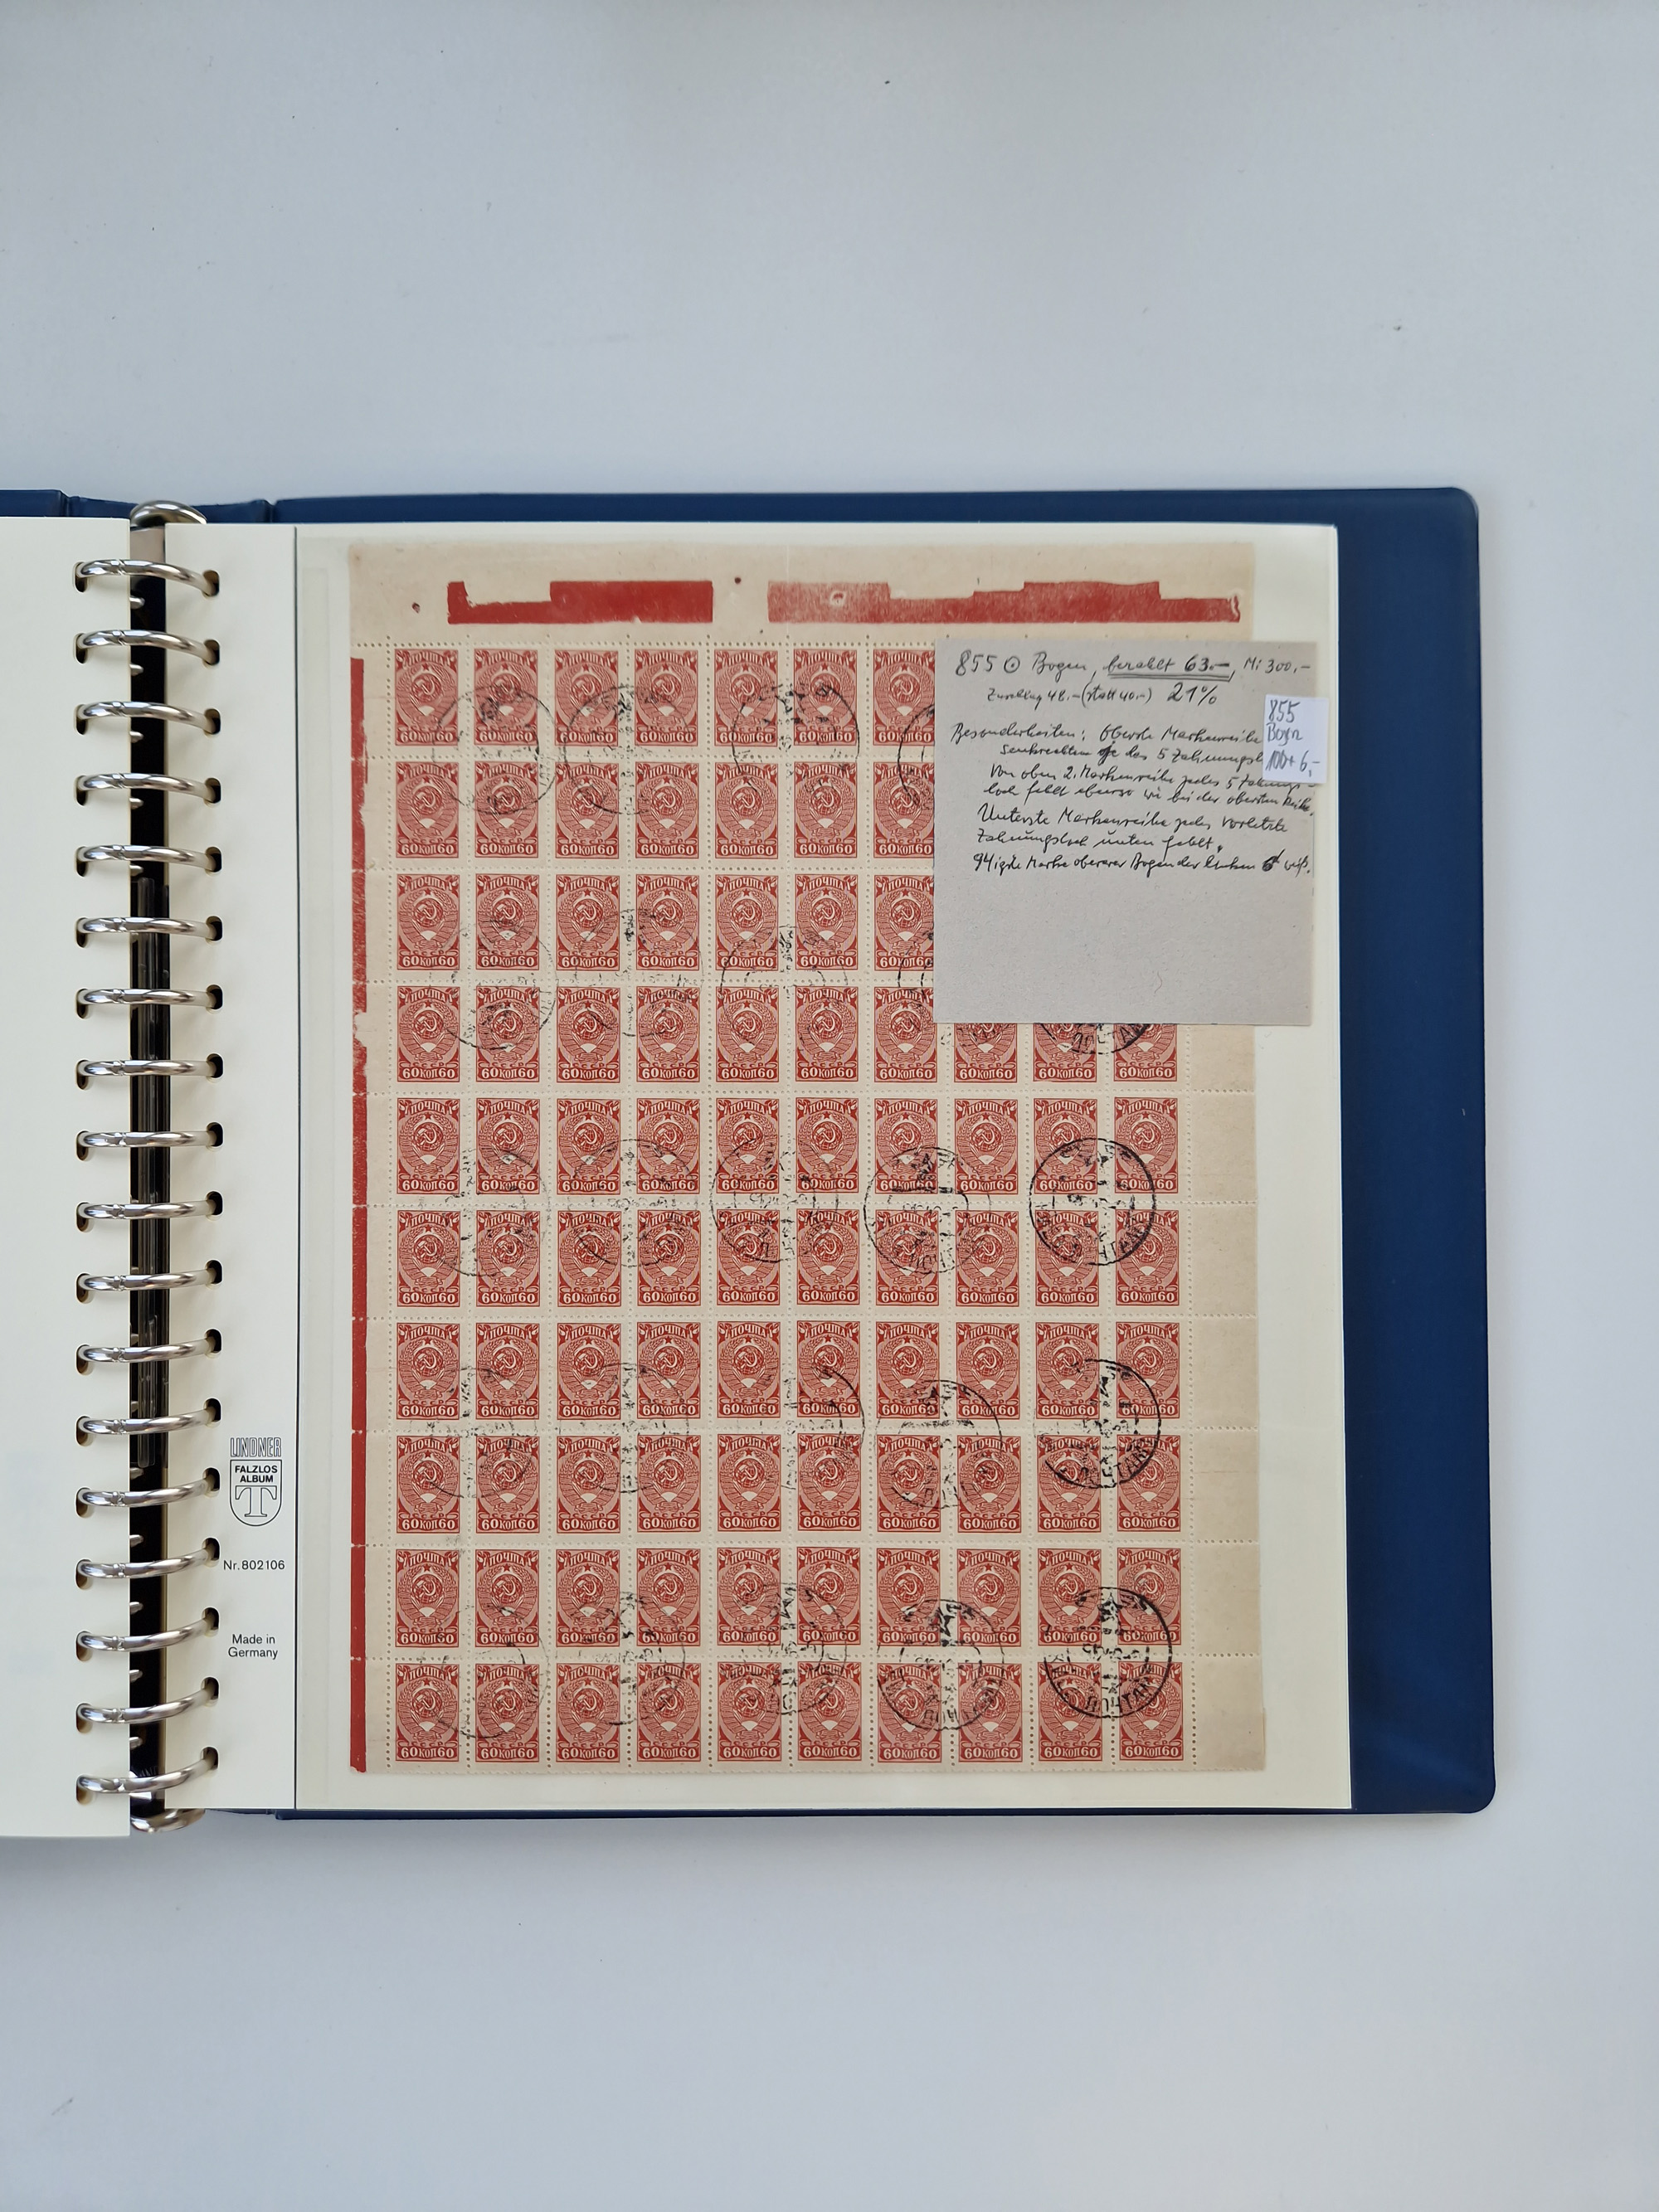 855 ⊙ Bogen, bezahlt 63.—, Mi 300,—
Zuschlag 48.- (statt 40.-) 21%
Besonderheiten: Oberste Markenreihe
Senkrechten je das 5 Zahnungsl
Von oben 2. Markenreihe jedes 5 Zahnungs-
loch fehlt ebenso wie bei der obersten Reihe.
Unterste Markenreihe jedes vorletzte
Zahnungsloch unten fehlt.
94igste Marke oberer Bogen der linken 6 weiß.
855
Bogen
100+6,-
ПОЧТА
СССР
60 КОП 60
LINDNER
FALZLOS
ALBUM
T
Nr. 802106
Made in
Germany